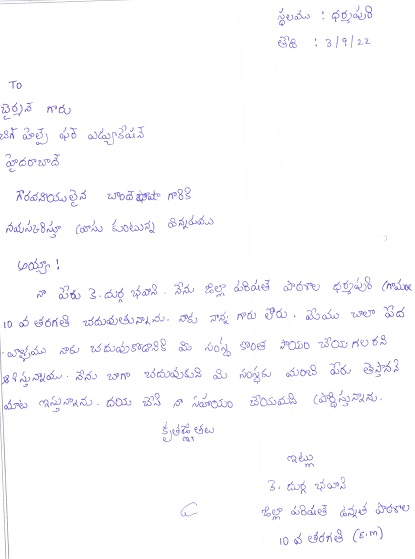 స్థలము : ధర్మపురి
తేది : 3/9/22
To
చైర్మన్ గారు
బిగ్ హెల్ప్ ఫర్ ఎడ్యుకేషన్
హైదరాబాద్
గౌరవనీయులైన చాంద్ పాషా గారికి
నమస్కరిస్తూ వ్రాసు కుంటున్న విన్నపము
అయ్యా !
నా పేరు కె. దుర్గ భవాని. నేను జిల్లా పరిషత్ పాఠశాల ధర్మపురి గ్రామం
10 వ తరగతి చదువుతున్నాను. నాకు నాన్న గారు లేరు. మేము చాలా పేద
వాళ్ళము నాకు చదువుకోడానికి మీ సంస్థ కొంత సాయం చేయగలరని
ఆశిస్తున్నాము. నేను బాగా చదువుకుని మీ సంస్థకు మంచి పేరు తెస్తానని
మాట ఇస్తున్నాను. దయ చేసి నా సహాయం చేయమని ప్రార్థిస్తున్నాను.
కృతజ్ఞతలు
ఇట్లు
కె. దుర్గ భవాని
జిల్లా పరిషత్ ఉన్నత పాఠశాల
10 వ తరగతి (E.M)